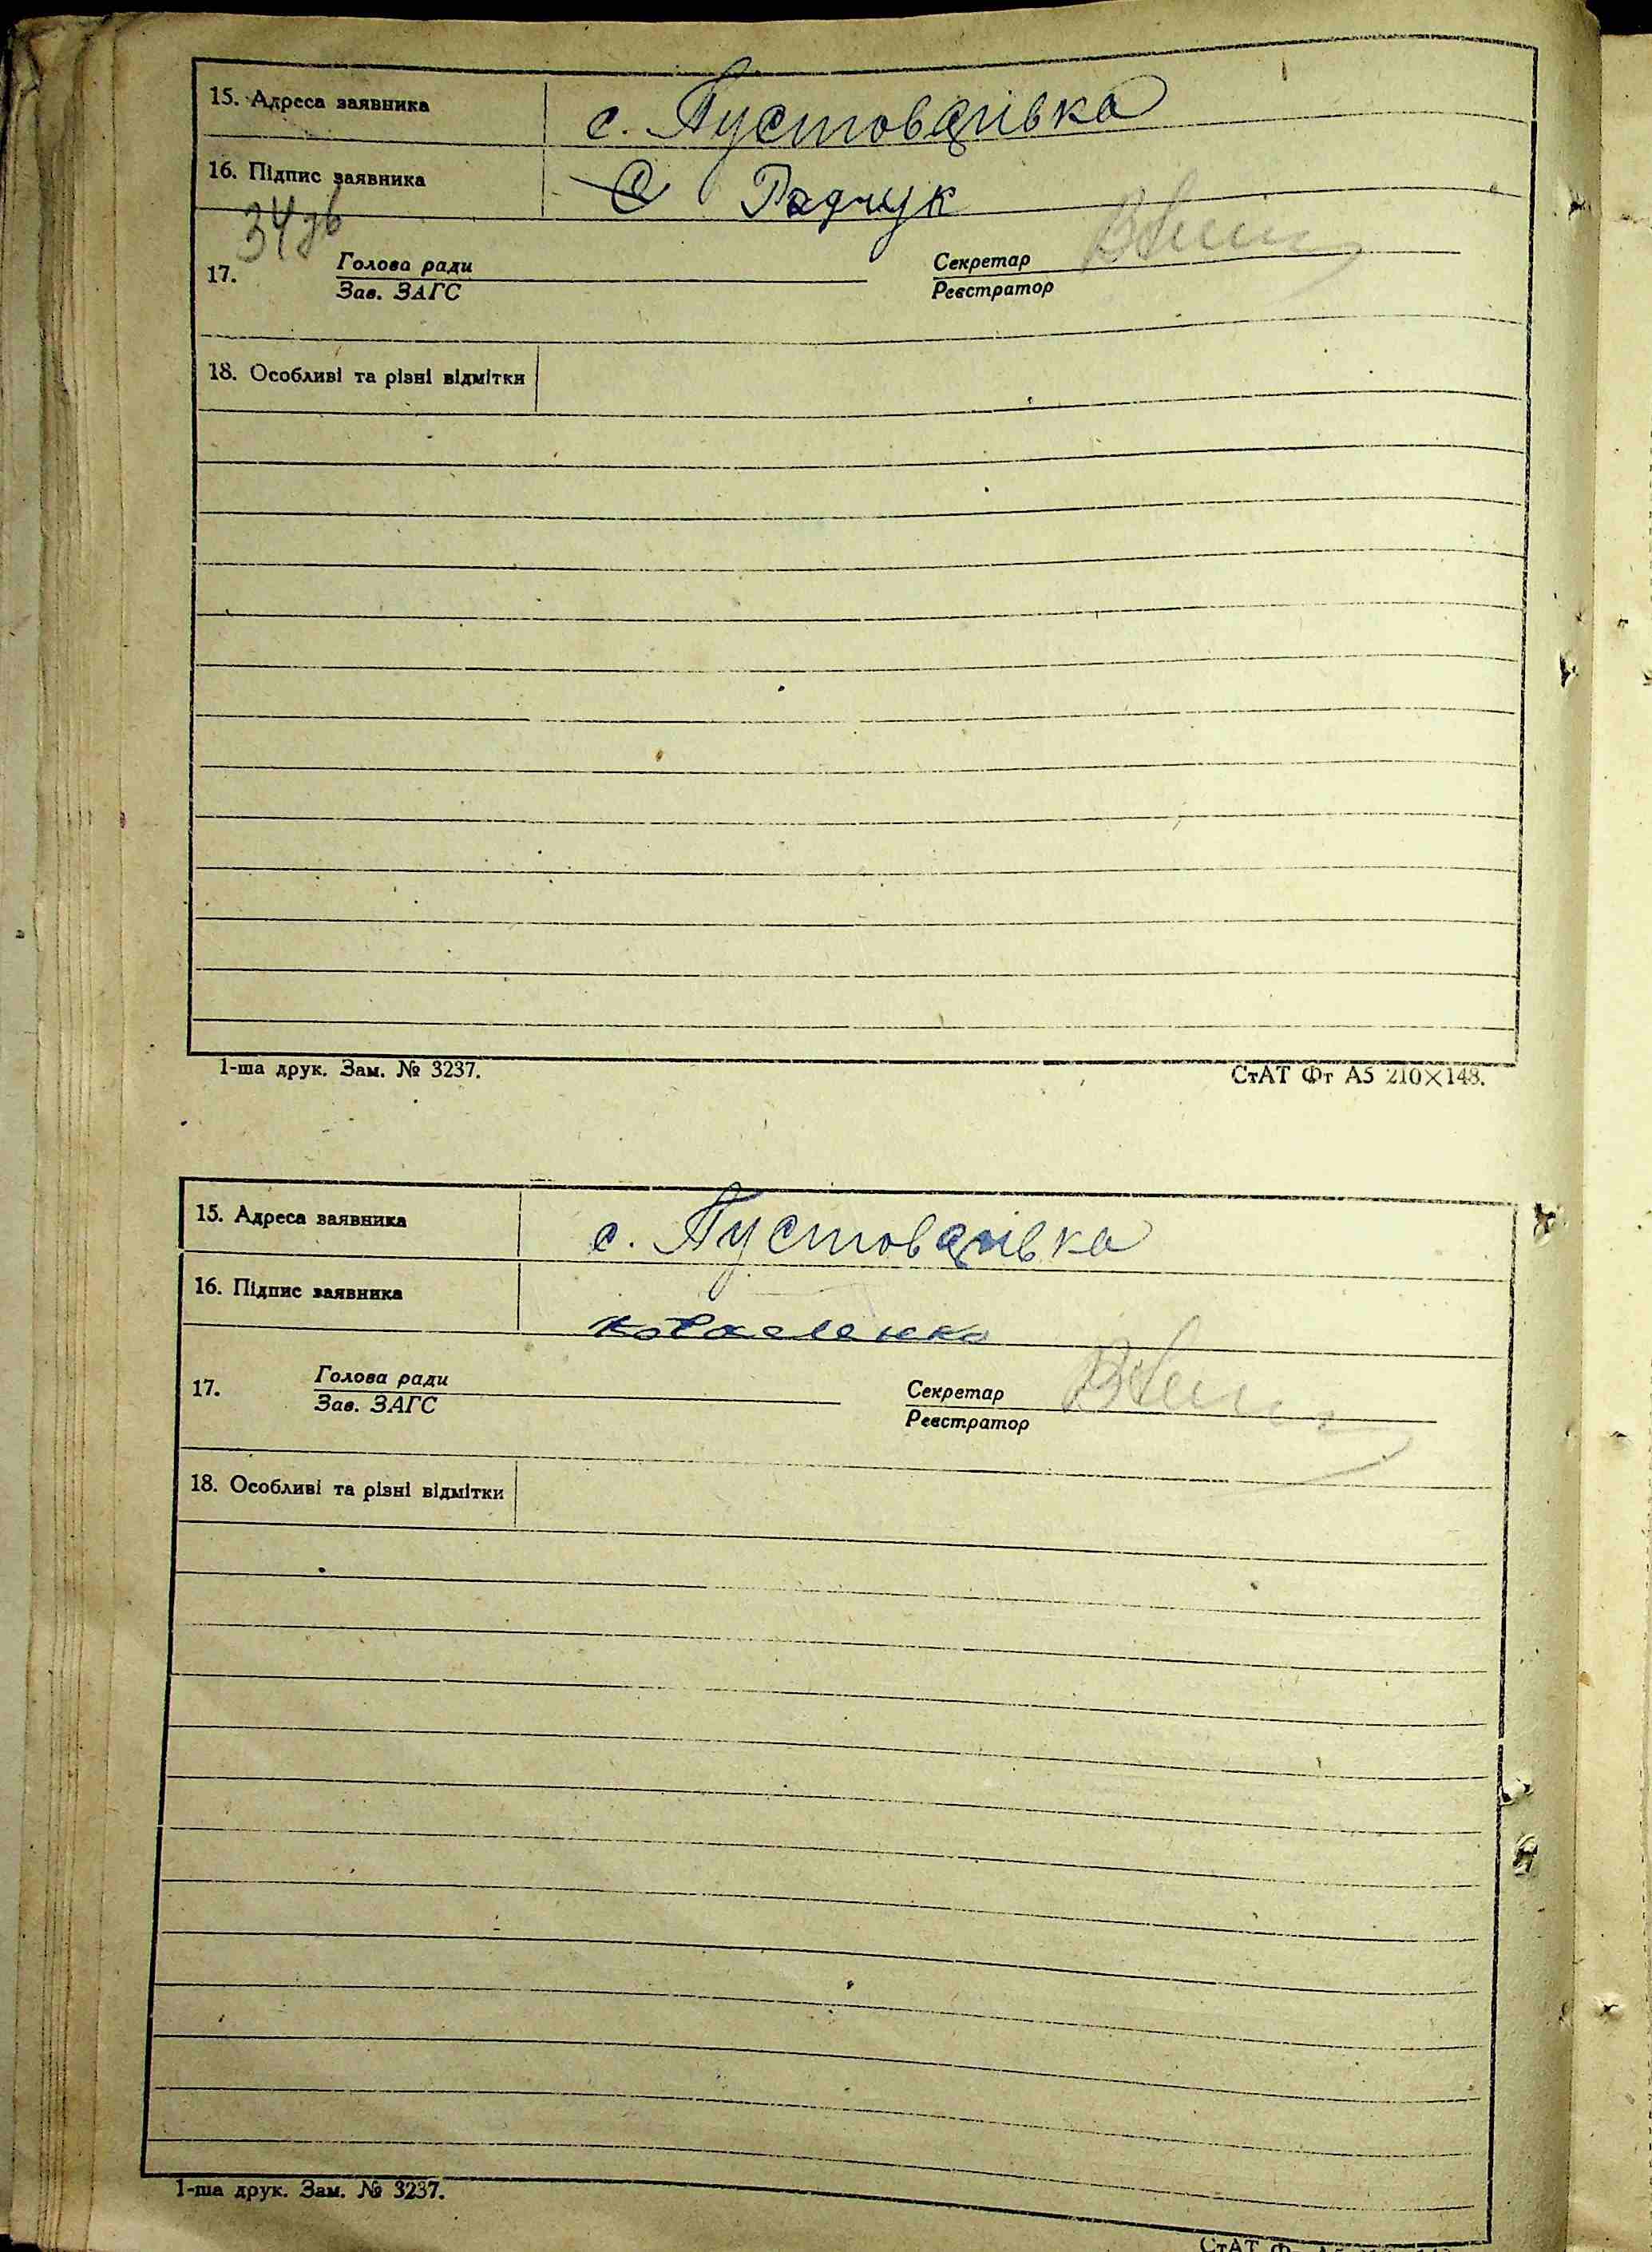 15. Адреса заявника с. Пустованівка
16. Підпис заявника Радчук
34 зв
17. Голова ради Секретар
Зав. ЗАГС Реєстратор
18. Особливі та різні відмітки
1-ша друк. Зам. № 3237. СтАТ Фт А5 210×148.
15. Адреса заявника с. Пустованівка
16. Підпис заявника Коваленко
17. Голова ради Секретар
Зав. ЗАГС Реєстратор
18. Особливі та різні відмітки
1-ша друк. Зам. № 3237.
СтАТ